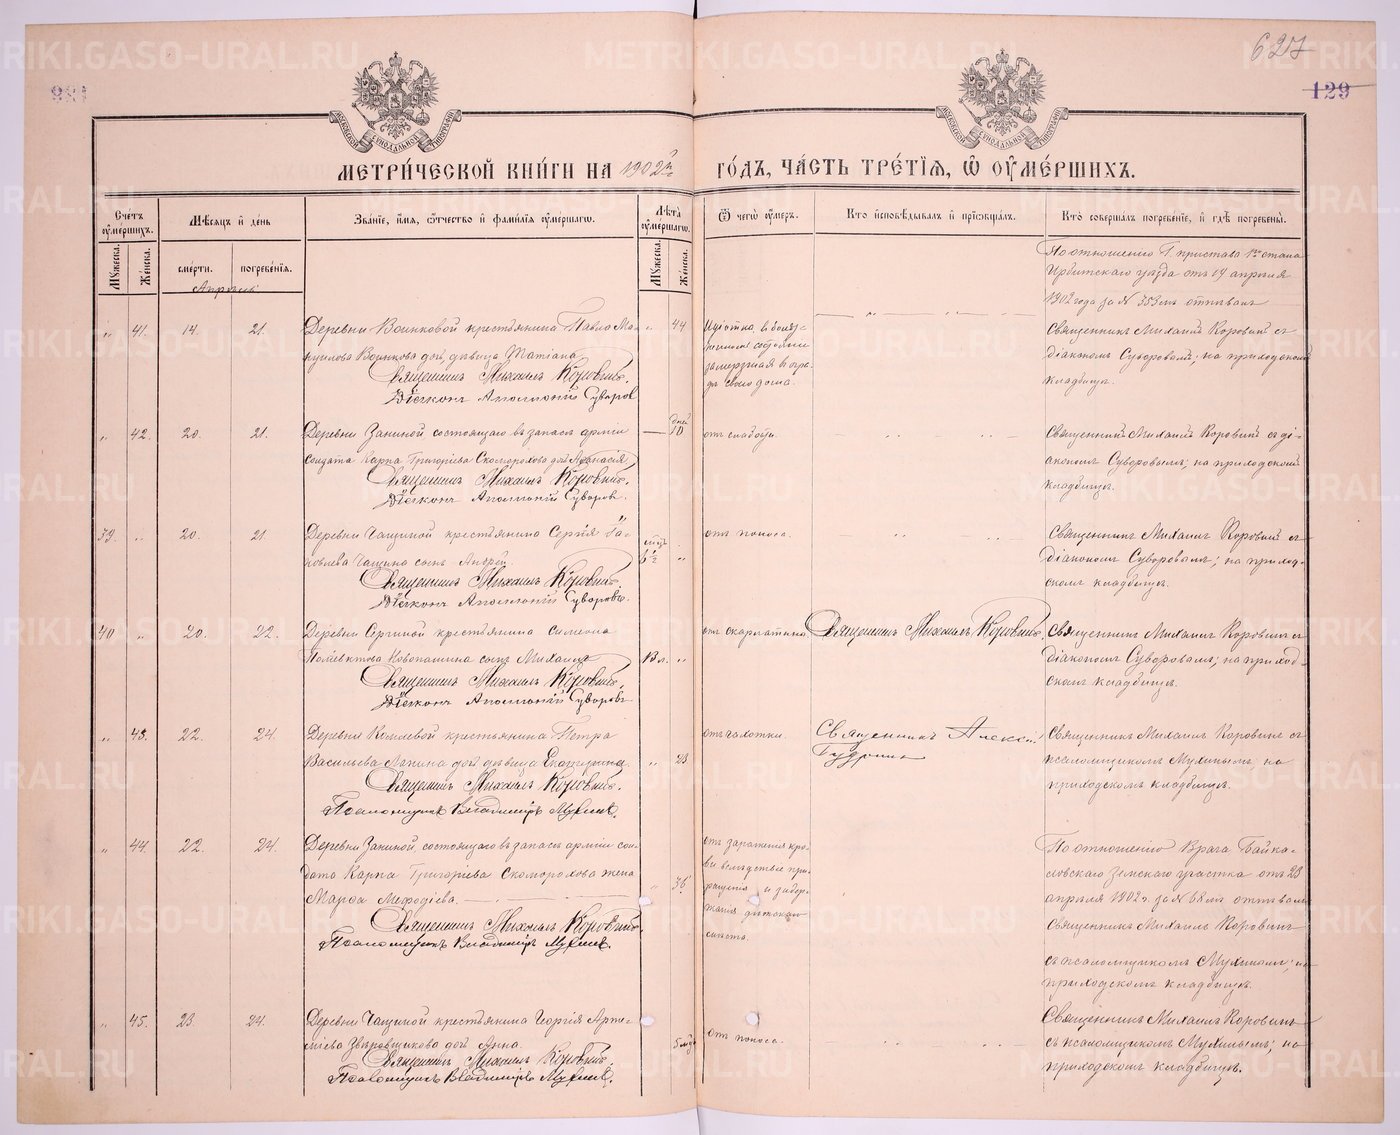 627
129
МЕТРИ́ЧЕСКОЙ КНИ́ГИ НА 1902 й
ГО́ДЪ, ЧА́СТЬ ТРЕ́ТІѦ, Ѡ҆ ОУ҆МЕ́РШИХЪ.
Сче́тъ оу҆ме́ршихъ.
Мꙋжеска.
Же́нска.
Мѣ́сѧцъ и҆ де́нь
сме́рти.
погребе́нїѧ.
Апрѣль
Зва́нїе, и҆́мѧ, ѻ҆́тчество и҆ фами́лїѧ оу҆ме́ршагѡ.
Лѣ́та оу҆ме́ршагѡ.
Мꙋжеска.
Же́нска.
Ѿ чегѡ̀ оу҆́меръ.
Кто̀ и҆сповѣ́дывалъ и҆ прїѡбща́лъ.
Кто̀ соверша́лъ погребе́нїе, и҆ гдѣ̀ погребены̀.
По отношенію Г. пристава 1го стана
Ирбитскаго уѣзда отъ 19 апрѣля
1902 года за № 353мъ отпѣванъ
„ 41. 14. 21.
Деревни Воинковой крестьянина Павла Ма-
нуилова Воинкова дочь, дѣвица Татіана
Священникъ Михаилъ Коровинъ.
Діаконъ Аполлоній Суворов
„ 44
Идіотка, въ болѣз-
замерзшая въ огра-
дѣ своего дома.
Священникъ Михаилъ Коровинъ съ
діакономъ Суворовымъ; на приходскомъ
кладбищѣ.
„ 42. 20. 21.
Деревни Заниной состоящаго въ запасѣ арміи
солдата Карпа Григоріева Скоморохова дочь Аѳанасія
Священникъ Михаилъ Коровинъ.
Діаконъ Аполлоній Суворовъ.
дней
10
отъ слабости.
Священникъ Михаилъ Коровинъ съ ді-
акономъ Суворовымъ; на приходскомъ
кладбищѣ.
39. „ 20. 21.
Деревни Чащиной крестьянина Сергія Іа-
ковлева Чащина сынъ Андрей
Священникъ Михаилъ Коровинъ.
Діаконъ Аполлоній Суворовъ.
отъ поноса.
Священникъ Михаилъ Коровинъ съ
діакономъ Суворовымъ; на приход-
скомъ кладбищѣ.
40 „ 20. 22.
Деревни Сергиной крестьянина Симеона
Поліевктова Новопашина сынъ Михаилъ
Священникъ Михаилъ Коровинъ.
Діаконъ Аполлоній Суворовъ
13 л. „
отъ скарлатины.
Священникъ Михаилъ Коровинъ.
Священникъ Михаилъ Коровинъ съ
діакономъ Суворовымъ; на приход-
скомъ кладбищѣ.
„ 43. 22. 24.
Деревни крестьянина Петра
Васильева дочь дѣвица Екатерина.
Священникъ Михаилъ Коровинъ.
Псаломщикъ Владиміръ Мухинъ.
„ 23
отъ чахотки.
Священникъ Алексій
Священникъ Михаилъ Коровинъ съ
псаломщикомъ Мухинымъ, на
приходскомъ кладбищѣ.
„ 44. 22. 24.
Деревни Заниной, состоящаго въ запасѣ арміи сол-
дата Карпа Григоріева Скоморохова жена
Марѳа Меѳодіева.
Священникъ Михаилъ Коровинъ.
Псаломщикъ Владиміръ Мухинъ.
„ 36
отъ зараженія кро-
ви вслѣдствіе при-
ращенія и задер-
жанія дѣтскаго
мѣста.
По отношенію Врача Байка-
ловскаго земскаго участка отъ 23
апрѣля 1902 г. за № 68мъ отпѣвалъ
Священникъ Михаилъ Коровинъ
съ псаломщикомъ Мухинымъ; на
приходскомъ кладбищѣ.
„ 45. 23. 24.
Деревни Чащиной крестьянина Георгія Арте-
міева Звѣровщикова дочь Анна.
Священникъ Михаилъ Коровинъ.
Псаломщикъ Владиміръ Мухинъ.
отъ поноса.
Священникъ Михаилъ Коровинъ
съ псаломщикомъ Мухинымъ; на
приходскомъ кладбищѣ.
METRIKI.GASO-URAL.RU